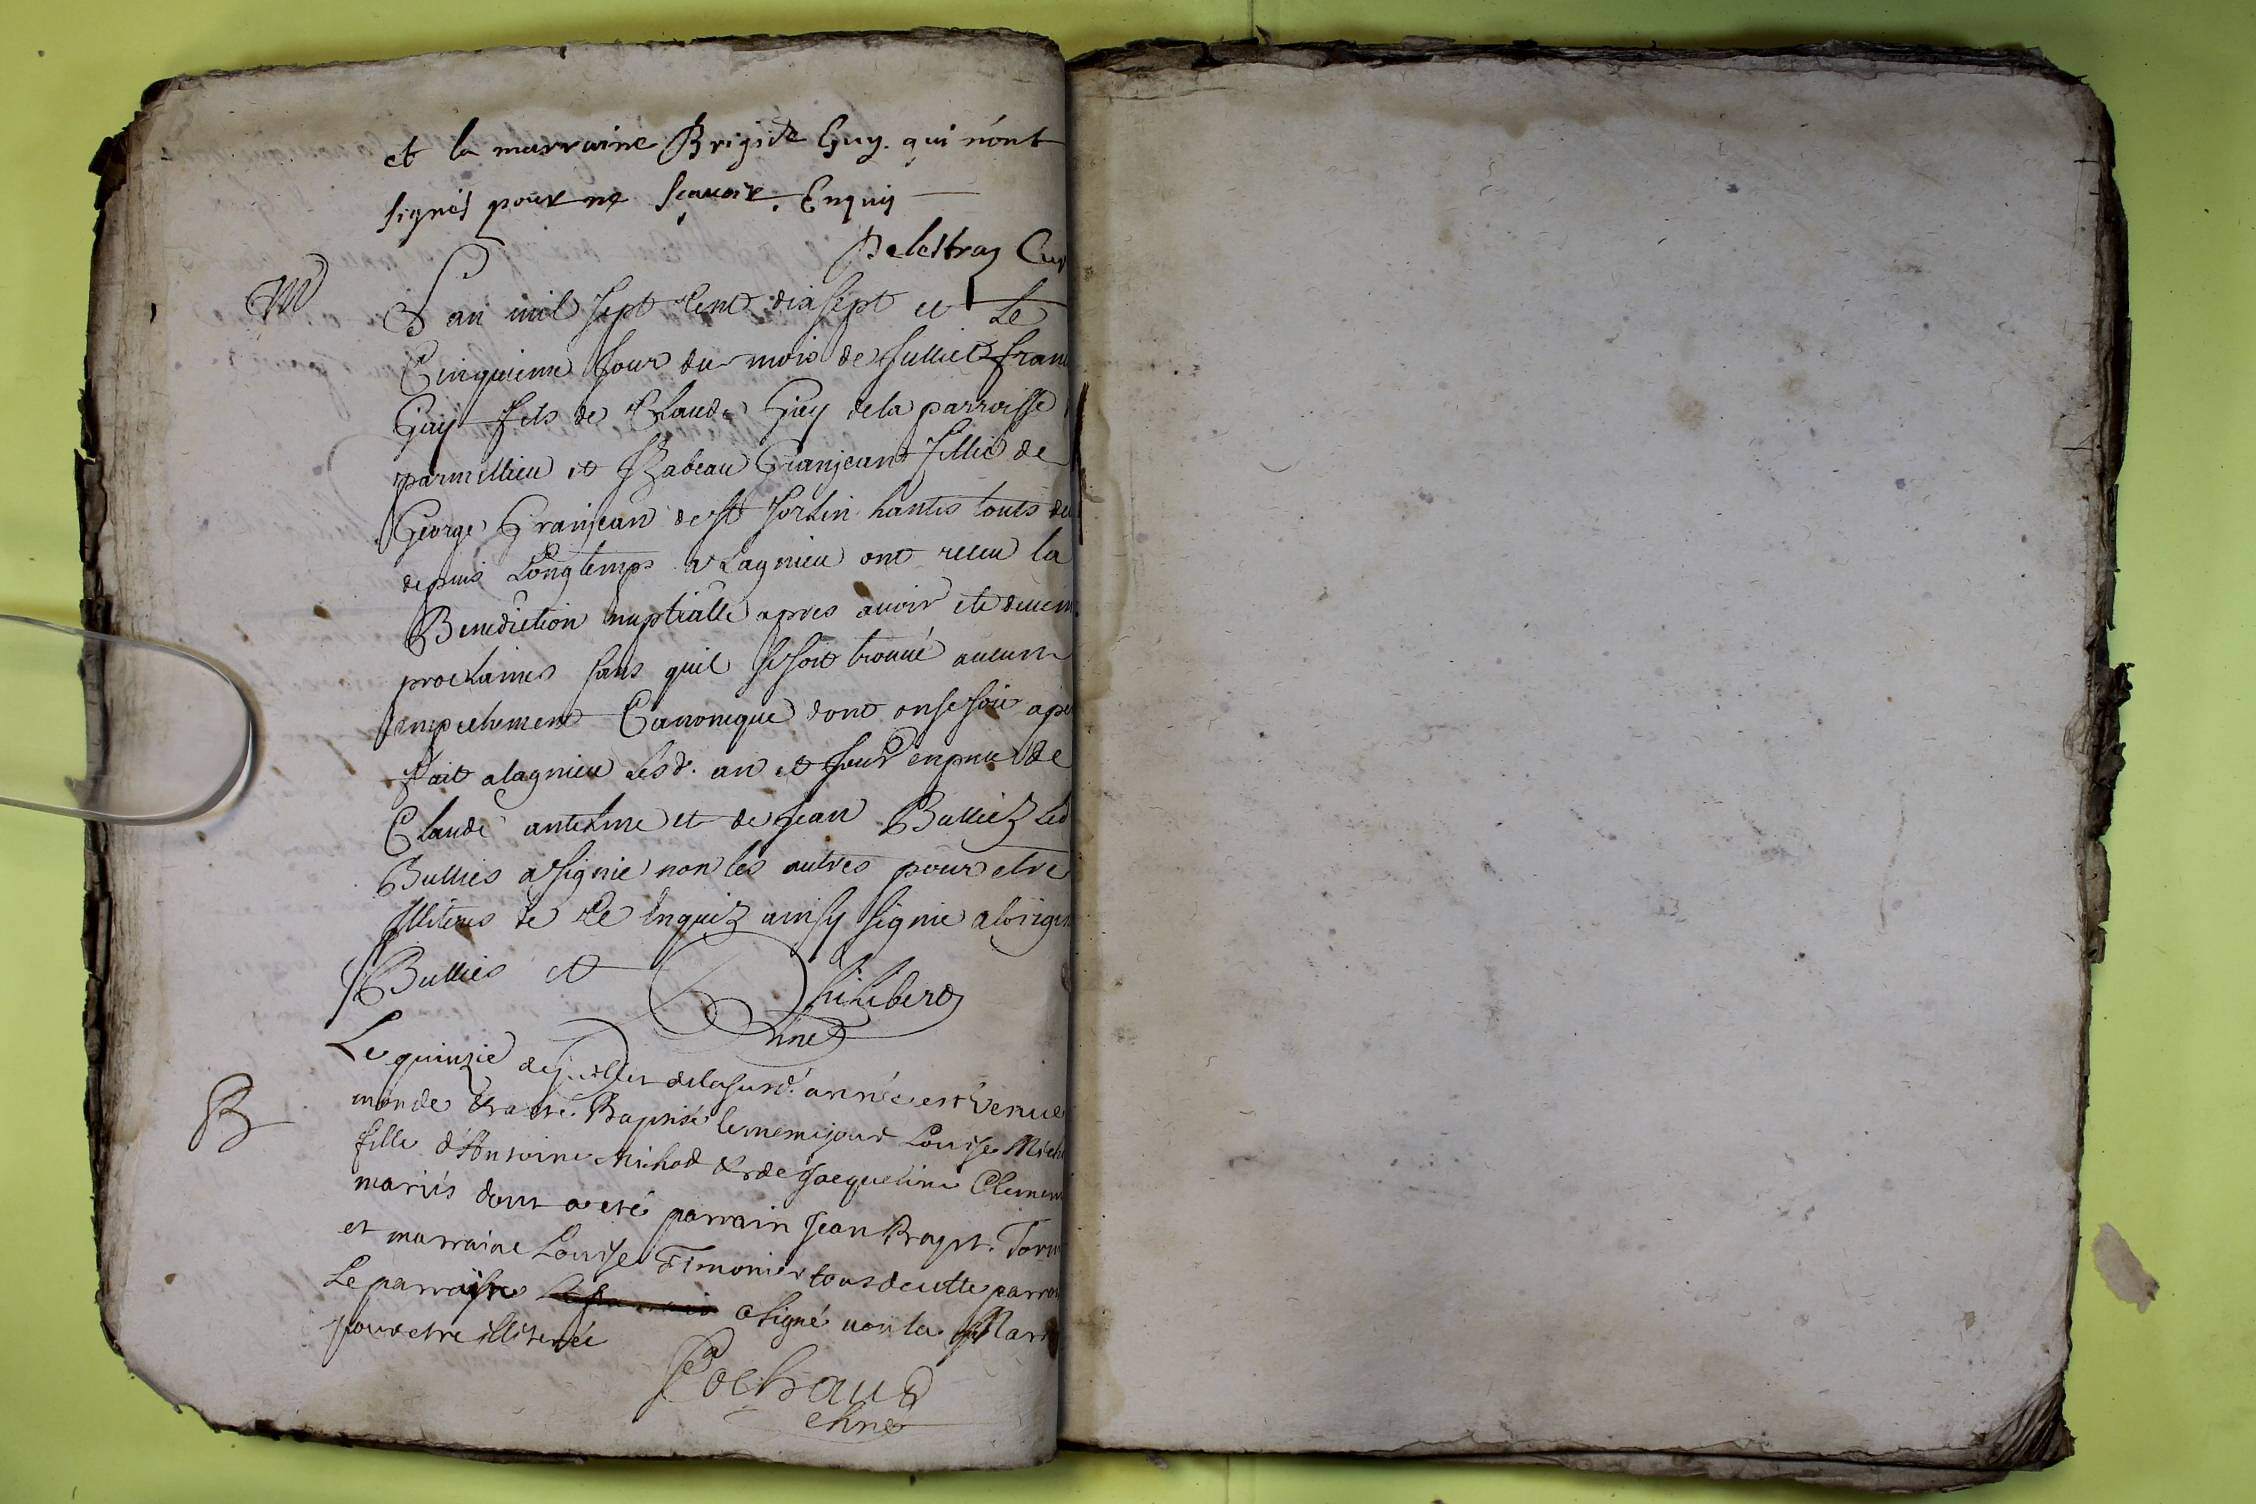 et la marraine Brigide Guy. qui n'ont
signés pour ne sçavoir. Enquis
Delestraz Cur
M
L'an mil sept cent dixsept et Le
Cinquieme Jour du mois de Julliet fran
Guy fils de Claude Guy de la parroisse
parmillieu et Izabeau Granjean fillie de
George Granjean de st Sorlin hantis touts de
depuis Longtemps a Lagnieu ont receu la
Benediction nuptialle apres avoir ete deuem
proclaimes sans quil se soit trouué aucun
empechement Canonique dont on se soit aper
fait a lagnieu lesd. an et Jour en pnce de
Claude antelme et de Jean Bulliez Led
Bullies a signie non les autres pour etre
Illiteres de ce Enquiz ainsy signie a lorigin
Bullies et Philiberd
chne
B
Le quinzie de juillet de la susd. année est venue
monde & a été Baptisée le meme jour Louise Micho
fille d'Antoine Michod & de Jacqueline Clemen
mariés dont a eté parrain Jean Bapt. Torn
et marraine Louise Timonier tous de cette parroi
Le parrain a signé non la Marr
pour etre illiterée
Cochaud
chne